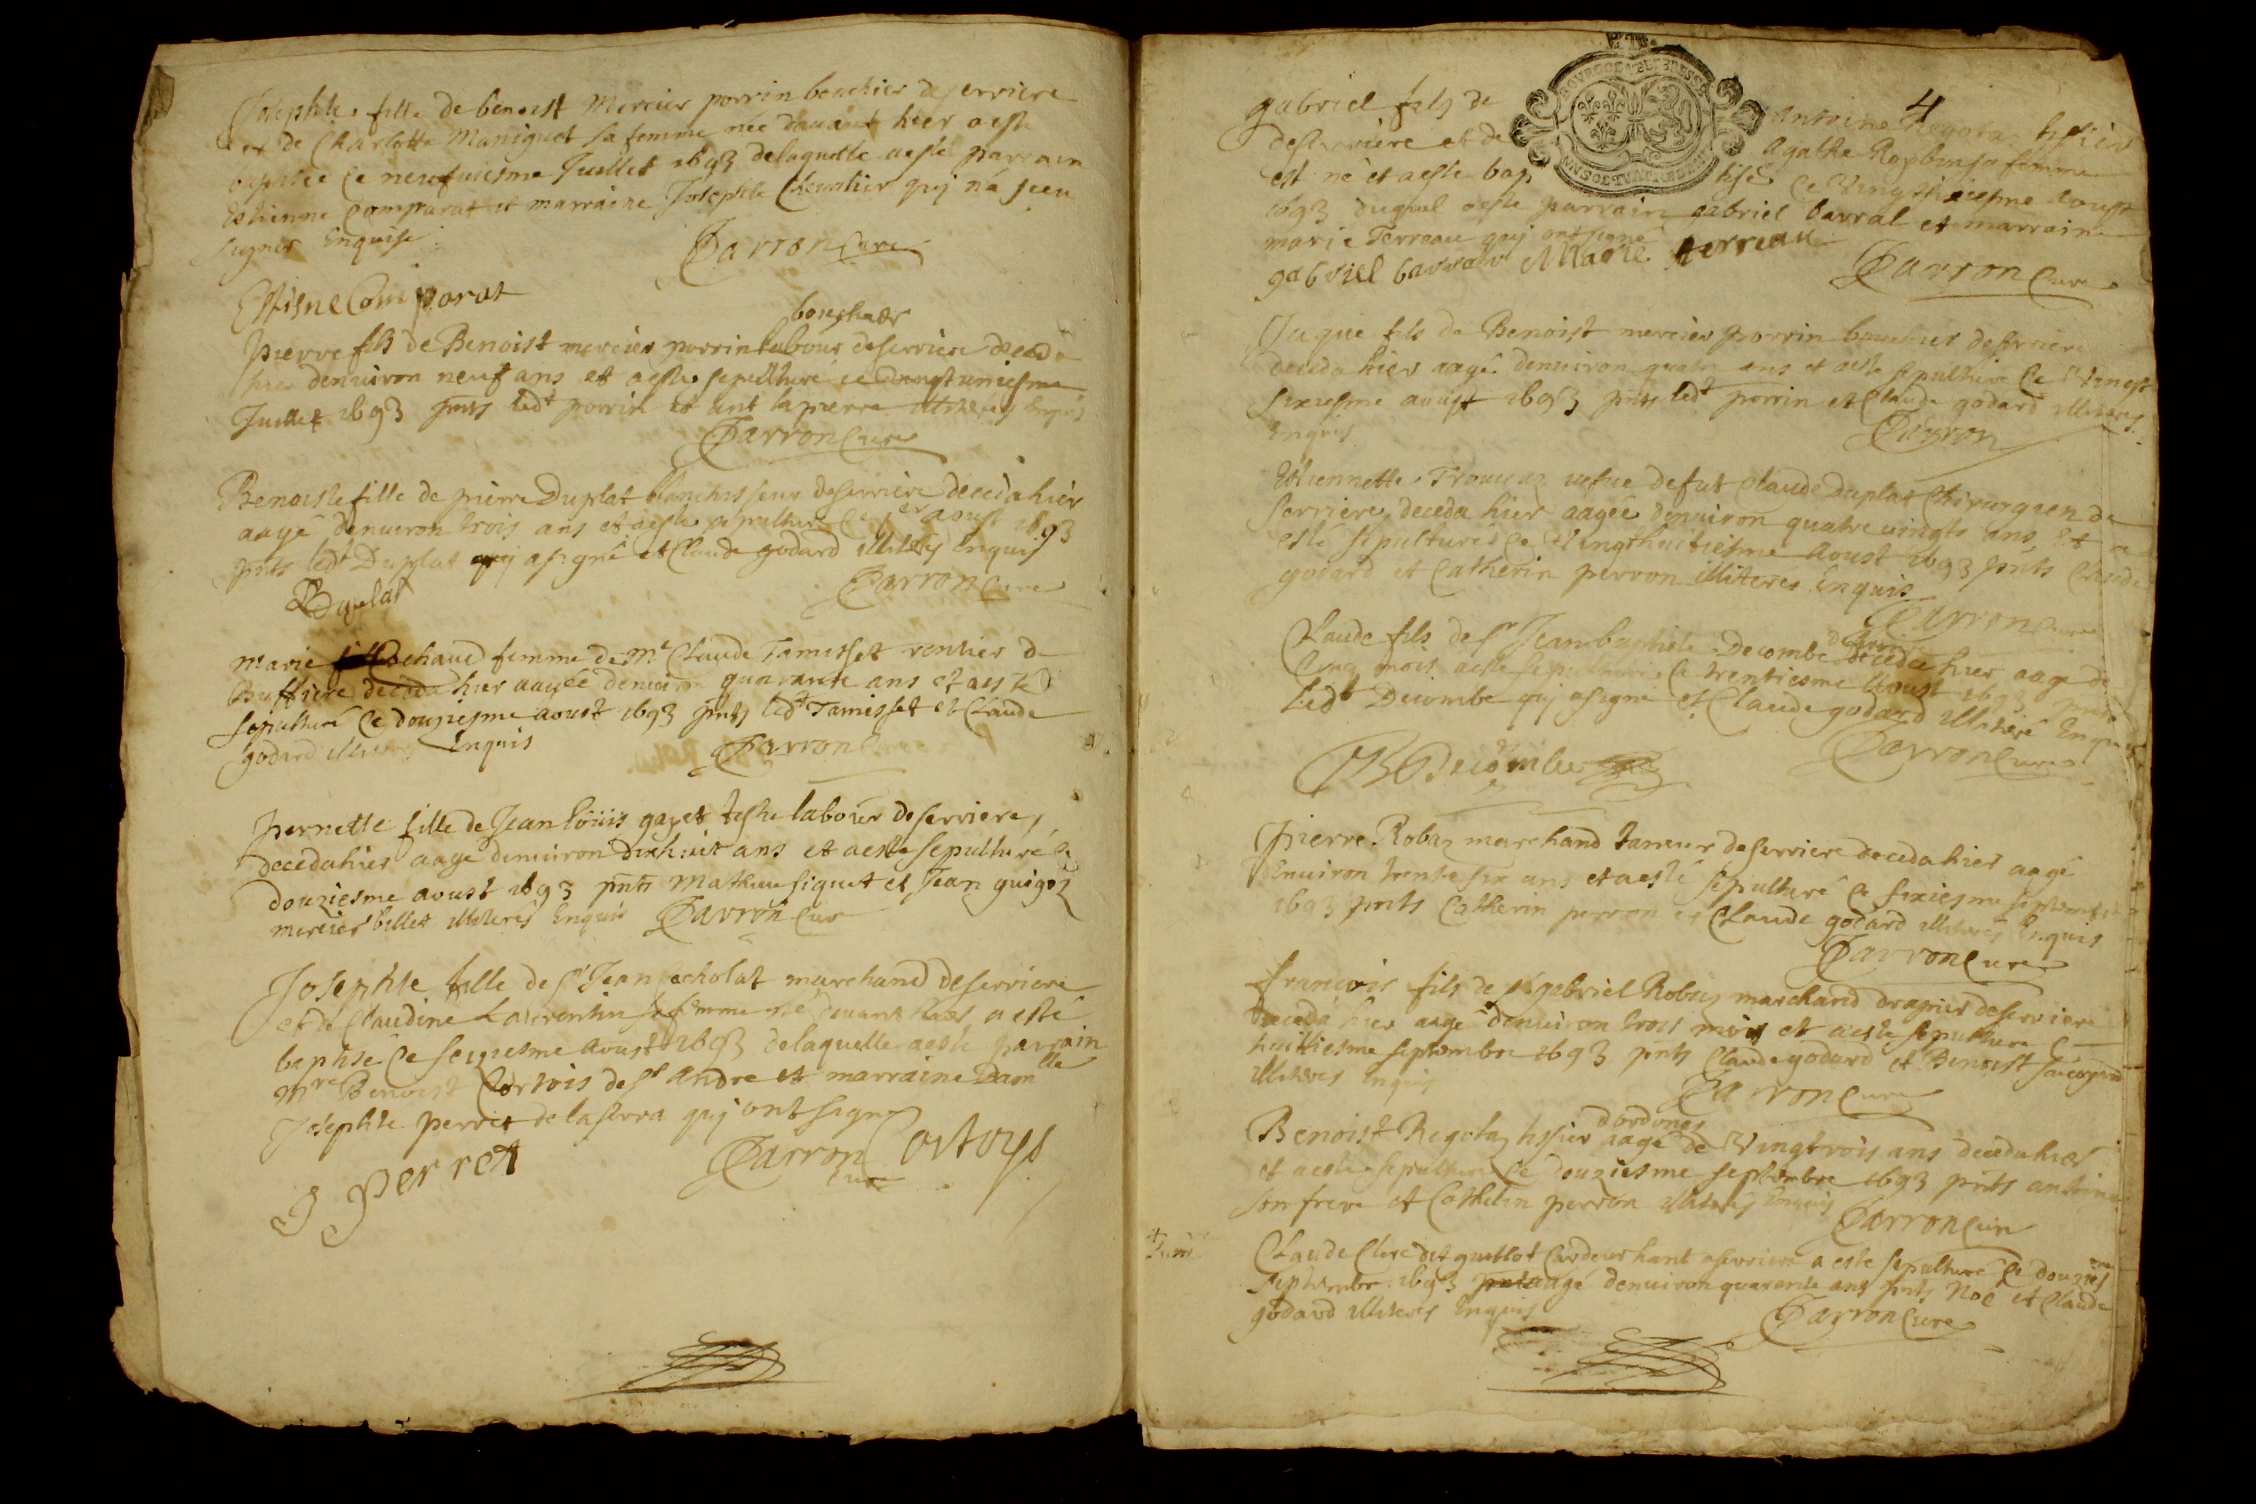 Josephte fille de benoist Mercier porrin bouchier de serriere
et de Charlotte Maniguet sa femme née dauant hier aeste
baptisée ce neufuiesme Juillet 1693 delaquelle aesté parrain
Estienne Comparat et marraine Josephte Cheualier qui na sceu
signer Enquise
Parron Cure
Estiene Comparat
bouchier
pierre fils de Benoist mercier porrin labour deserriere deceda
hier denuiron neuf ans et aeste sepulturé ce vingtuniesme
Juillet 1693 pnts ledt porrin et ant lapierre illiterés Enquis
Parron Cure
Benoiste fille de pierre Duplat blanchisseur deserriere deceda hier
aagé denuiron trois ans et aeste sepulturé ce 1er aoust 1693
pnts ledt Duplat qui asigné et Claude godard illiterés Enquis
Parron Cure
Duplat
marie Cochaud femme de Me Claude Tamisset rentier de
Buffiere deceda hier aagée denuiron quarante ans et aesté
sepulturé ce douziesme aoust 1693 pnts ledt Tamisset et Claude
godard Enquis
Parron Cure
pernette fille de Jean louis gayet teste labour deserriere
decedahier aagé denuiron dixhuit ans et aeste sepulturé ce
douziesme aoust 1693 pnts Mathieu siguet et Jean guigoz
mercier billet illiterés Enquis Parron Cure
Josephte fille de sr Jean echolat marchand deserriere
et de Claudine Laurentin sa femme né deuant hier aesté
baptisé ce seiziesme aoust 1693 delaquelle aesté parrain
Mre Benoist Cortois de st andre et marraine Damlle
Josephte perret de la serra qui ont signé
J perret
Parron Cure
Cortoys
4
gabriel fils de Antoine Regotaz tissier
deserriere et de Agathe sa femme
est né et aeste baptisé ce vingtsixiesme aoust
1693 duquel aeste parrain gabriel barral et marraine
marie Terreau qui ont signé
gabriel barral Marie terreau
Parron Cure
Juque fils de Benoist mercier porrin bouchier deserriere
deceda hier aagé denuiron quatre ans et aeste sepulturé ce vingt
sixiesme aoust 1693 pnts ledt porrin et Claude godard illiterés
Enquis
Parron
Estiennette vefue defut Claude Duplat Chirurgien de
serriere deceda hier aagée denuiron quatre uingts ans et a
esté sepulturée ce vingthuitiesme aoust 1693 pnts Claude
godard et Catherin perron illiteres Enquis
Parron Cure
Claude fils de sr Jeanbaptiste Decombe deceda hier aagé de
cinq mois aeste sepulturé ce trentiesme aoust 1693 pnts
Ledt Decombe qui asigné et Claude godard illiteré Enquis
JB Decombe
Parron Cure
pierre Robaz marchand tanneur deserriere deceda hier aagé
denuiron trente six ans et aesté sepulturé ce sixiesme septembre
1693 pnts Catherin perron et Claude godard illiterés Enquis
Parron Cure
francois fils de sr gabriel Robaz marchand drapier deserriere
deceda hier aagé denuiron trois mois et aeste sepulturé ce
huitiesme septembre 1693 pnts Claude godard et Benoist
illiteres Enquis
Parron Cure
dordonas
Benoist Regotaz tissier aagé de vingtrois ans decedahier
et aeste sepulturé ce douziesme septembre 1693 pnts antoine
son frere et Catherin perron illiterés Enquis
Parron Cure
Claude Clerc dit guillot Cardeur hant aserriere a este sepulturé ce douziesme
septembre 1693 aagé denuiron quarante ans pnts Noe et Claude
godard illiterés Enquis
Parron Cure